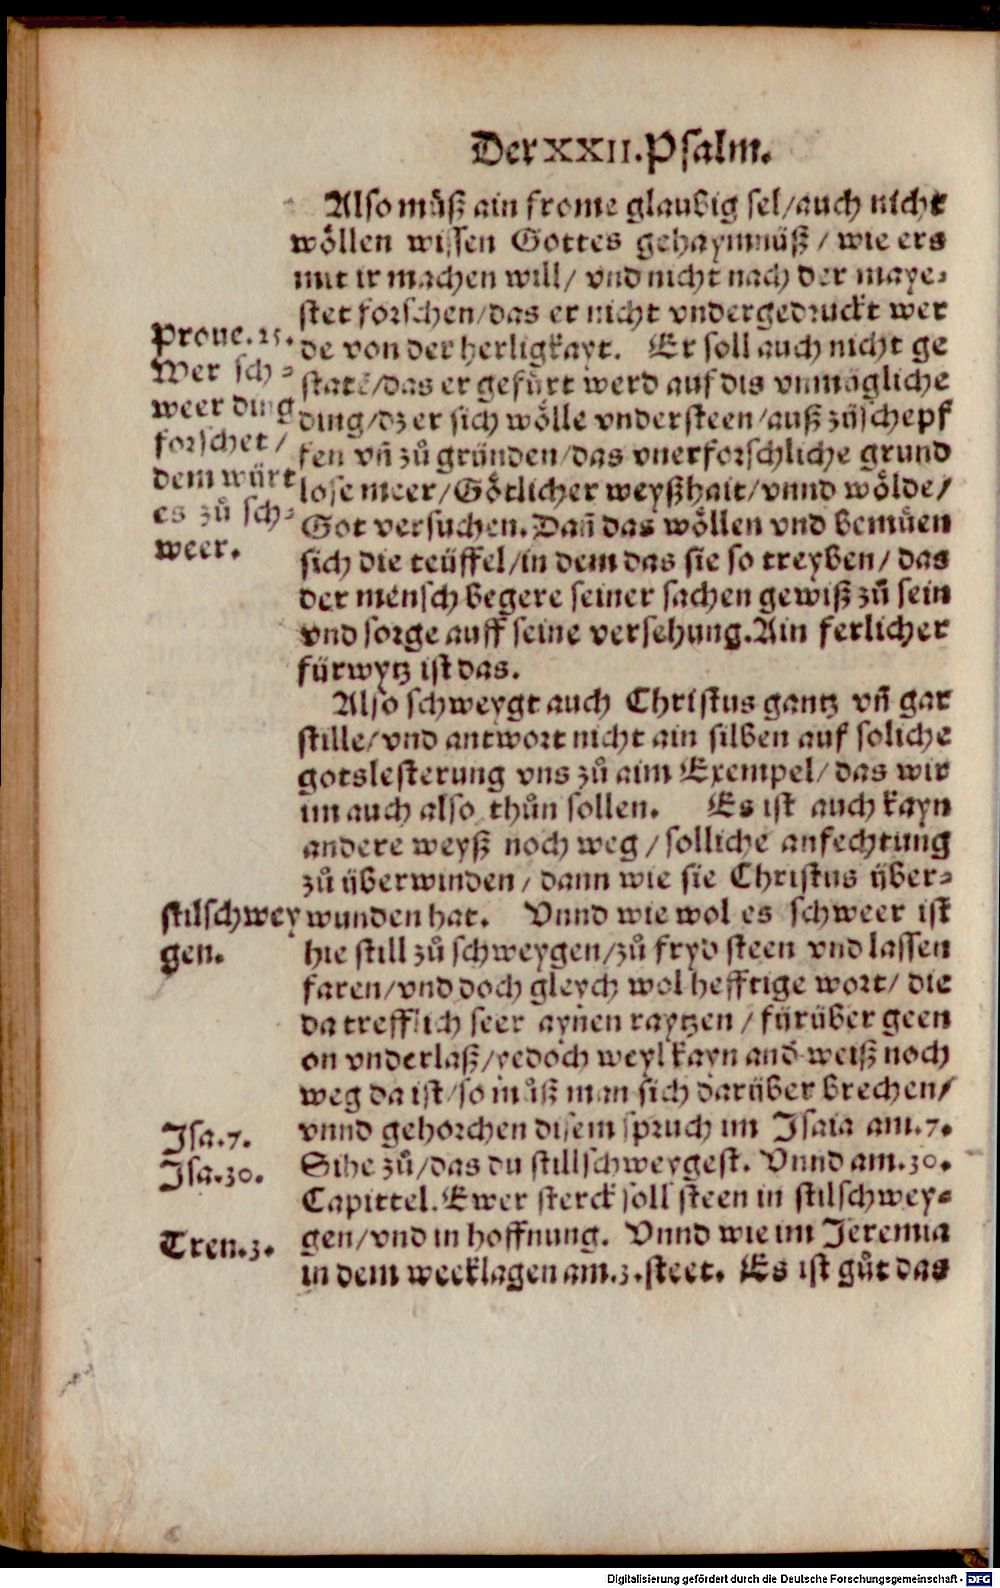 Der XXII. Psalm.
Also můß ain frome glaubig sel/auch nicht
wöllen wissen Gottes gehaymnüß / wie ers
mit ir machen will/ vnd nicht nach der maye-
stet forschen/das er nicht vndergedruckt wer
de von der herligkayt. Er soll auch nicht ge
statē/das er gefürt werd auf dis vnmögliche
ding/dz er sich wölle vndersteen/auß zůschepf
fen vñ zů gründen/das vnerforschliche grund
lose meer/Götlicher weyßhait/vnnd wölde/
Got versuchen. Dañ das wöllen vnd bemůen
sich die teüffel/in dem das sie so treyben/ das
der mensch begere seiner sachen gewiß zů sein
vnd sorge auff seine versehung. Ain ferlicher
fürwytz ist das.
Proue. 25.
Wer sch-
weer ding
forschet /
dem würt
es zů sch-
weer.
Also schweygt auch Christus gantz vñ gar
stille/vnd antwort nicht ain silben auf soliche
gotslesterung vns zů aim Exempel/das wir
im auch also thůn sollen. Es ist auch kayn
andere weyß noch weg / solliche anfechtung
zů überwinden / dann wie sie Christus über-
wunden hat. Vnnd wie wol es schweer ist
hie still zů schweygen/zů fryd steen vnd lassen
faren/vnd doch gleych wol hefftige wort/ die
da trefflich seer ayñen raytzen / fürüber geen
on vnderlaß/yedoch weyl kayn and̄ weiß noch
weg da ist/so můß man sich darüber brechen/
vnnd gehorchen disem spruch im Isaia am. 7.
Sihe zů/das du stillschweygest. Vnnd am. 30.
Capittel. Ewer sterck soll steen in stilschwey-
gen/vnd in hoffnung. Vnnd wie im Jeremia
in dem weeklagen am. 3. steet. Es ist gůt das
stilschwey
gen.
Isa. 7.
Isa. 30.
Tren. 3.
Digitalisierung gefördert durch die Deutsche Forschungsgemeinschaft - DFG